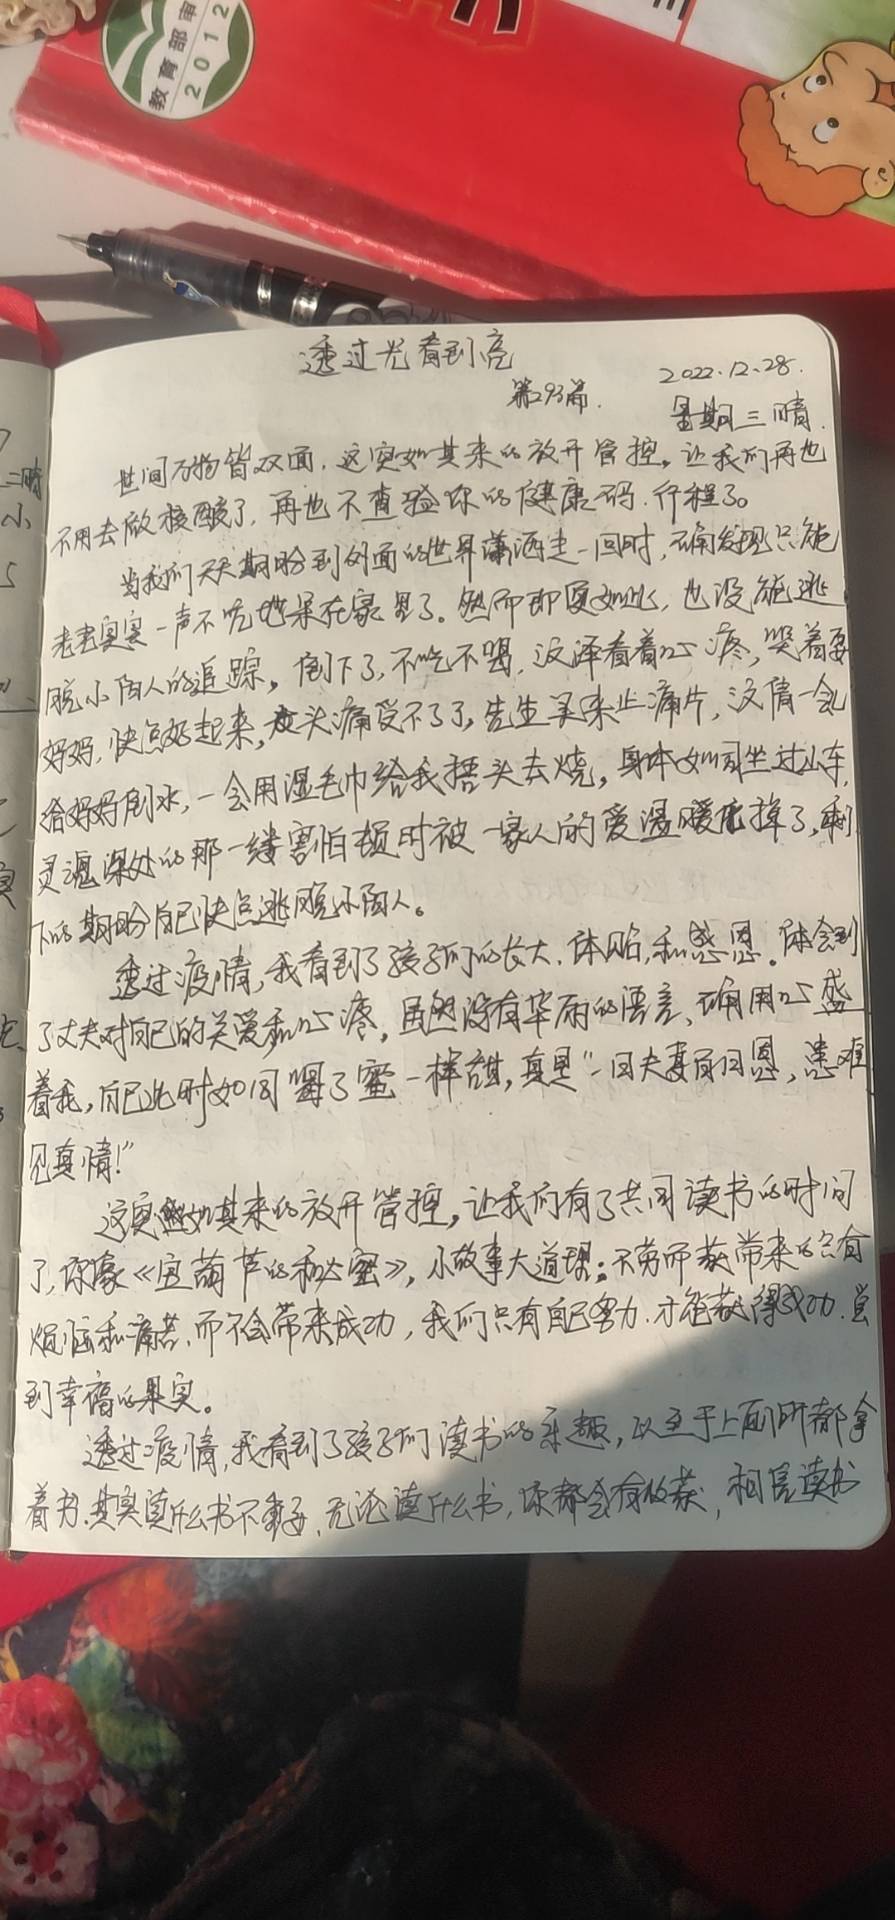 教育部审
2012
透过光看到亮
第293篇.
2022.12.28.
星期三晴.
世间万物皆双面，这突如其来的放开管控，让我们再也
不用去做核酸了，再也不查验你的健康码.行程了。
当我们天天期盼到外面的世界潇洒走一回时，确发现只能
老老实实一声不吭地呆在家里了。然而即便如此，也没能逃
脱小阳人的追踪，倒下了，不吃不喝，汶泽看着心疼，哭着要
妈妈，快点好起来，头痛受不了了，先生买来止痛片，汶倩一会儿
给妈妈倒水，一会用湿毛巾给我捂头去烧，身体如同坐过山车，
灵魂深处的那一缕害怕顿时被一家人的爱温暖化掉了，剩
下的期盼自己快点逃脱小阳人。
透过疫情，我看到了孩子们的长大、体贴，和感恩。体会到
了丈夫对自己的关爱和心疼，虽然没有华丽的语言、确用心盛
着我，自己此时如同喝了蜜一样甜，真是"一日夫妻百日恩，患难
见真情！"
这突然如其来的放开管控，让我们有了共同读书的时间
了，你像《宝葫芦的秘蜜》，小故事大道理；不劳而获带来的只有
烦恼和痛苦.而不会带来成功，我们只有自己努力.才能获得成功.
到幸福的果实。
透过疫情，我看到了孩子们读书的乐趣，以至于上厕所都拿
着书.其实读什么书不重要，无论读什么书，你都会有收获，相信读书
三晴
小